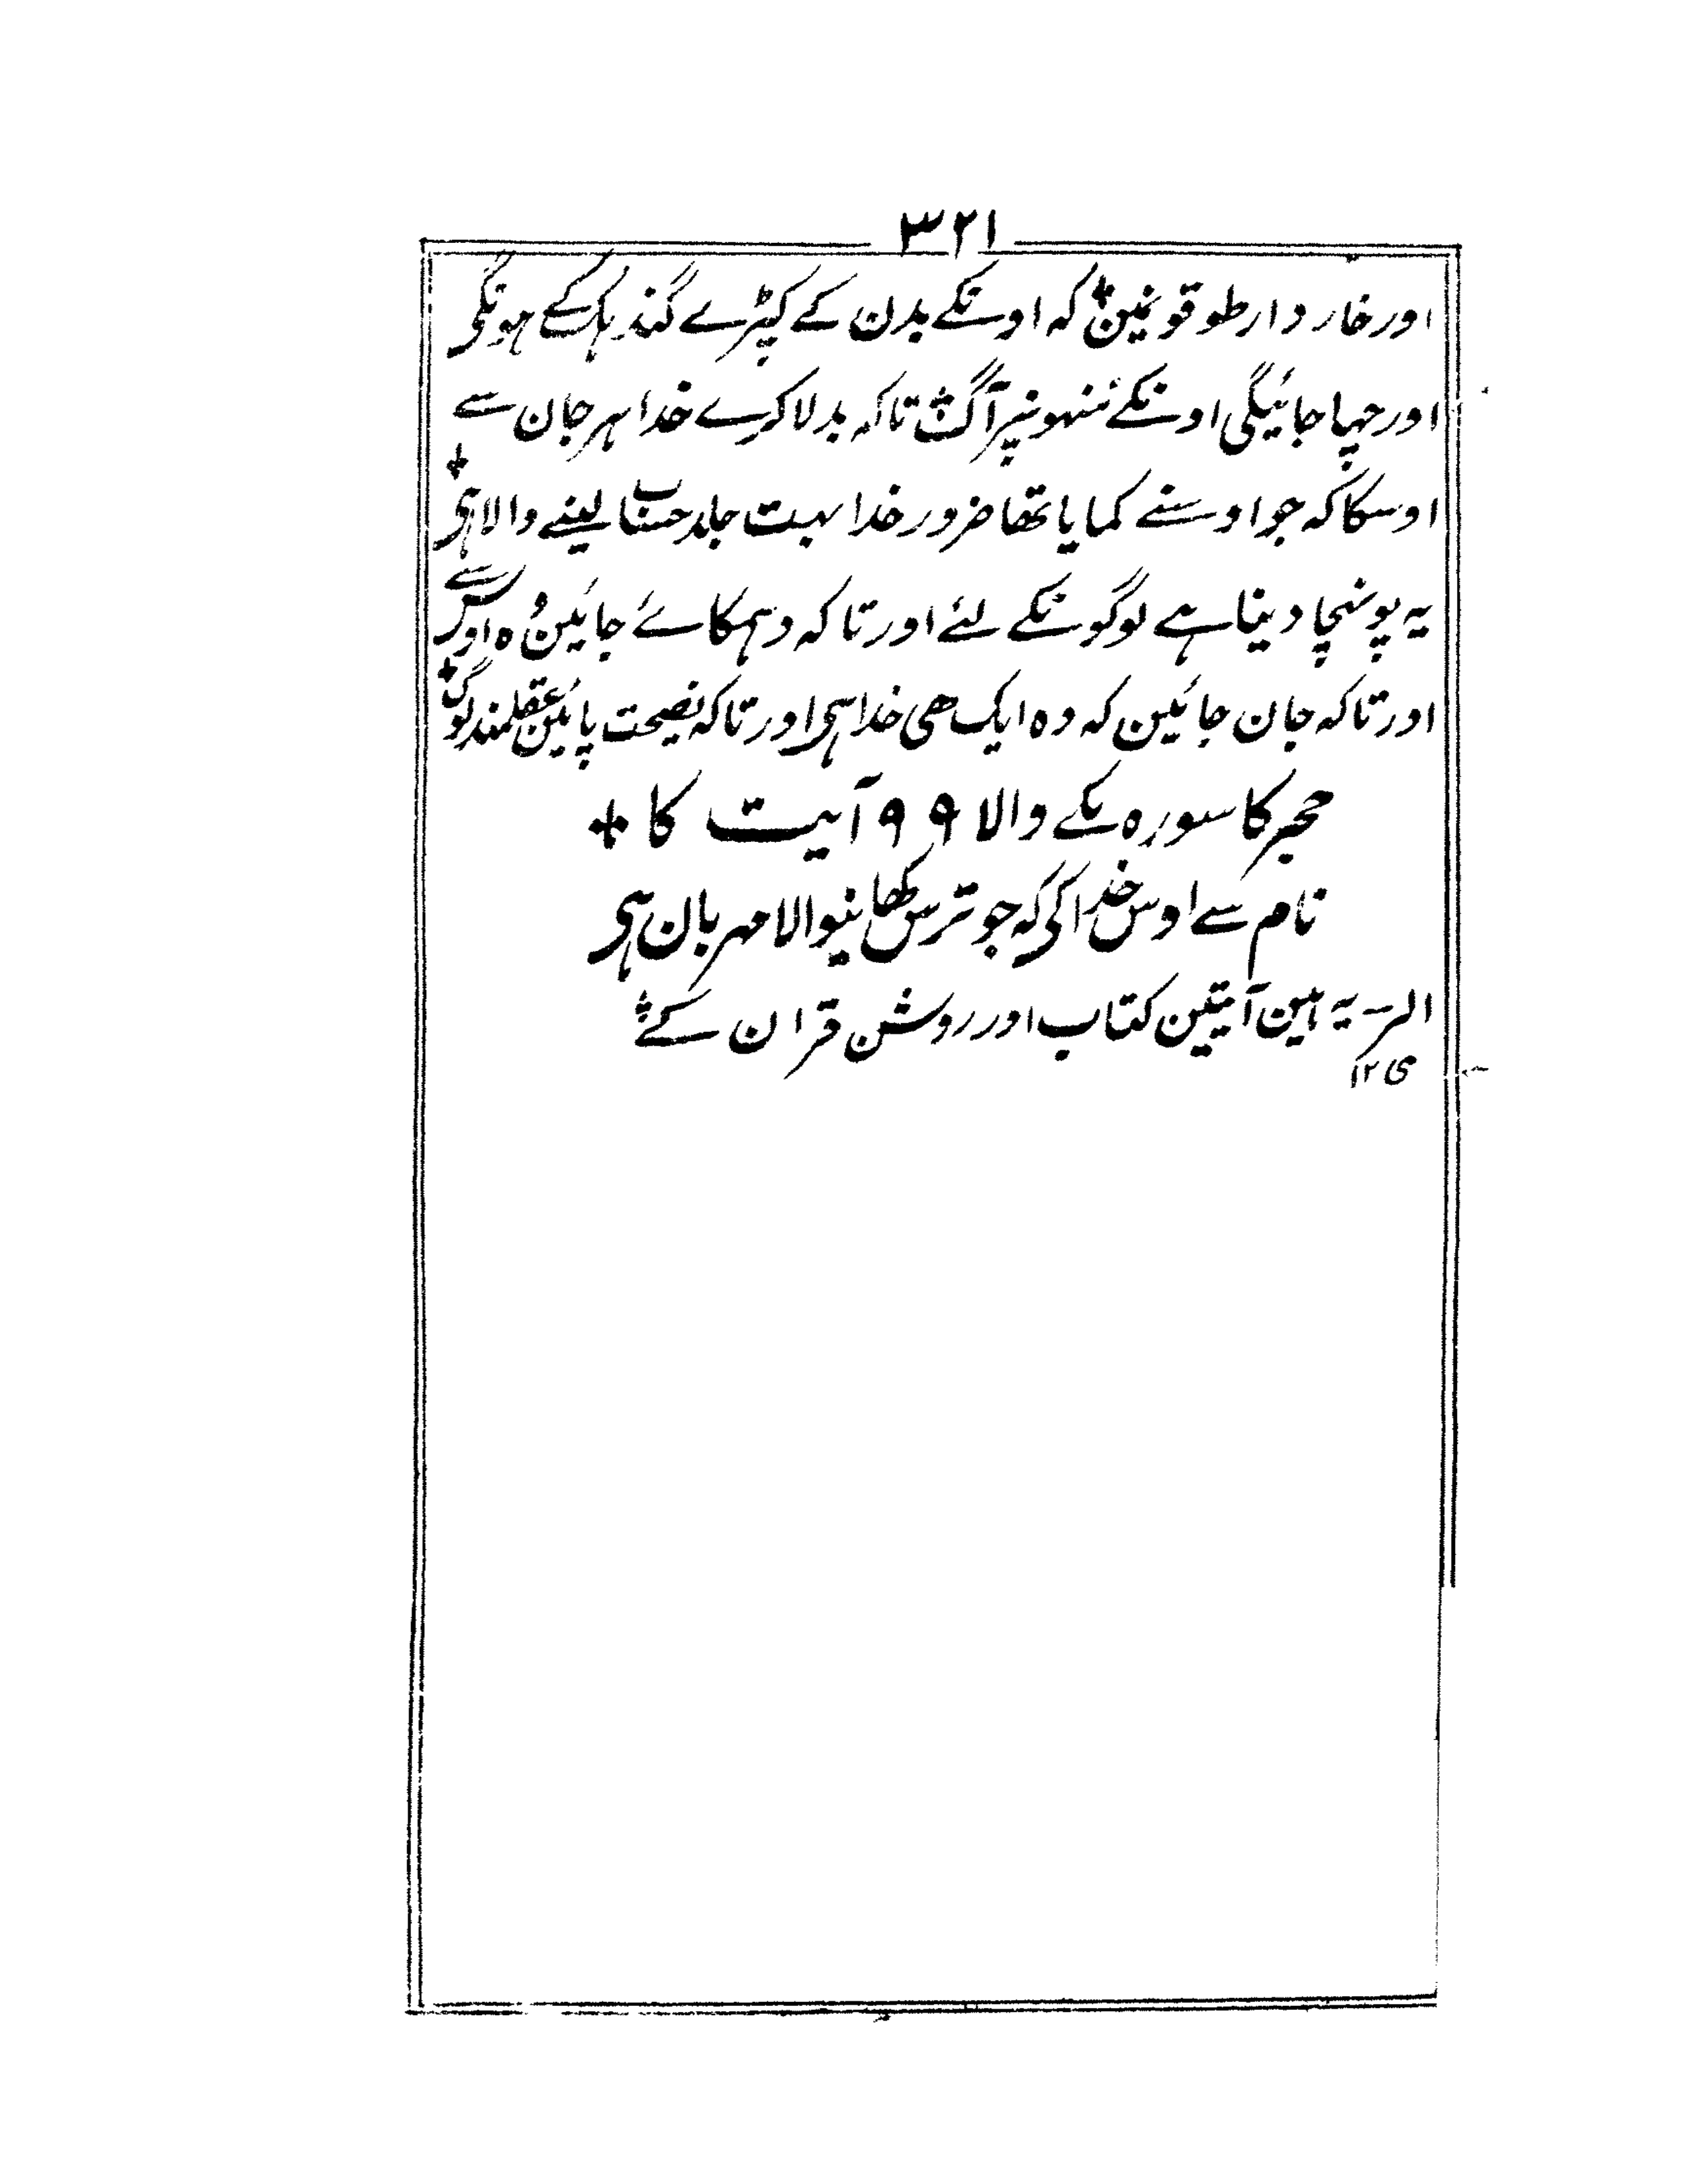 ۳۲۱
اور خار دار طوقونمین ✤ کہ اونکے بدن کے کپڑے گندہک کے ہونگی
اور چہپا جائیگی اونکے مُنہونپر آگ ✤ تاکہ بدلا کرے خدا ہر جان سے
اوسکا کہ جو اوسنے کمایا تھا ضرور خدا بہت جلد حساب لینے والا ہی ✤
یہ پونہچا دینا ہے لوگونکے لئے اور تاکہ دہمکائے جائین وُہ اوس سے
اور تاکہ جان جائین کہ وہ ایک ھی خدا ہی اور تاکہ نصیحت پائین عقلمند لوگ ✤
حجر کا سورہ مکے والا ۹۹ آیت کا ✤
نام سے اوس خدا کی کہ جو ترس کھانیوالا مہربان ہی
الرٓ یہ ہین آیتین کتاب اور روشن قران کے ✤
ی ۱۲